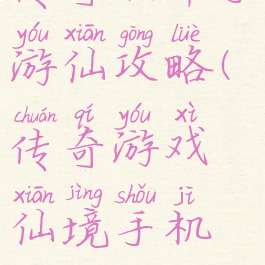 yóu xiān gōng lüè
游仙攻略(
chuán qí yóu xì
传奇游戏
xiān jìng shǒu jī
仙境手机